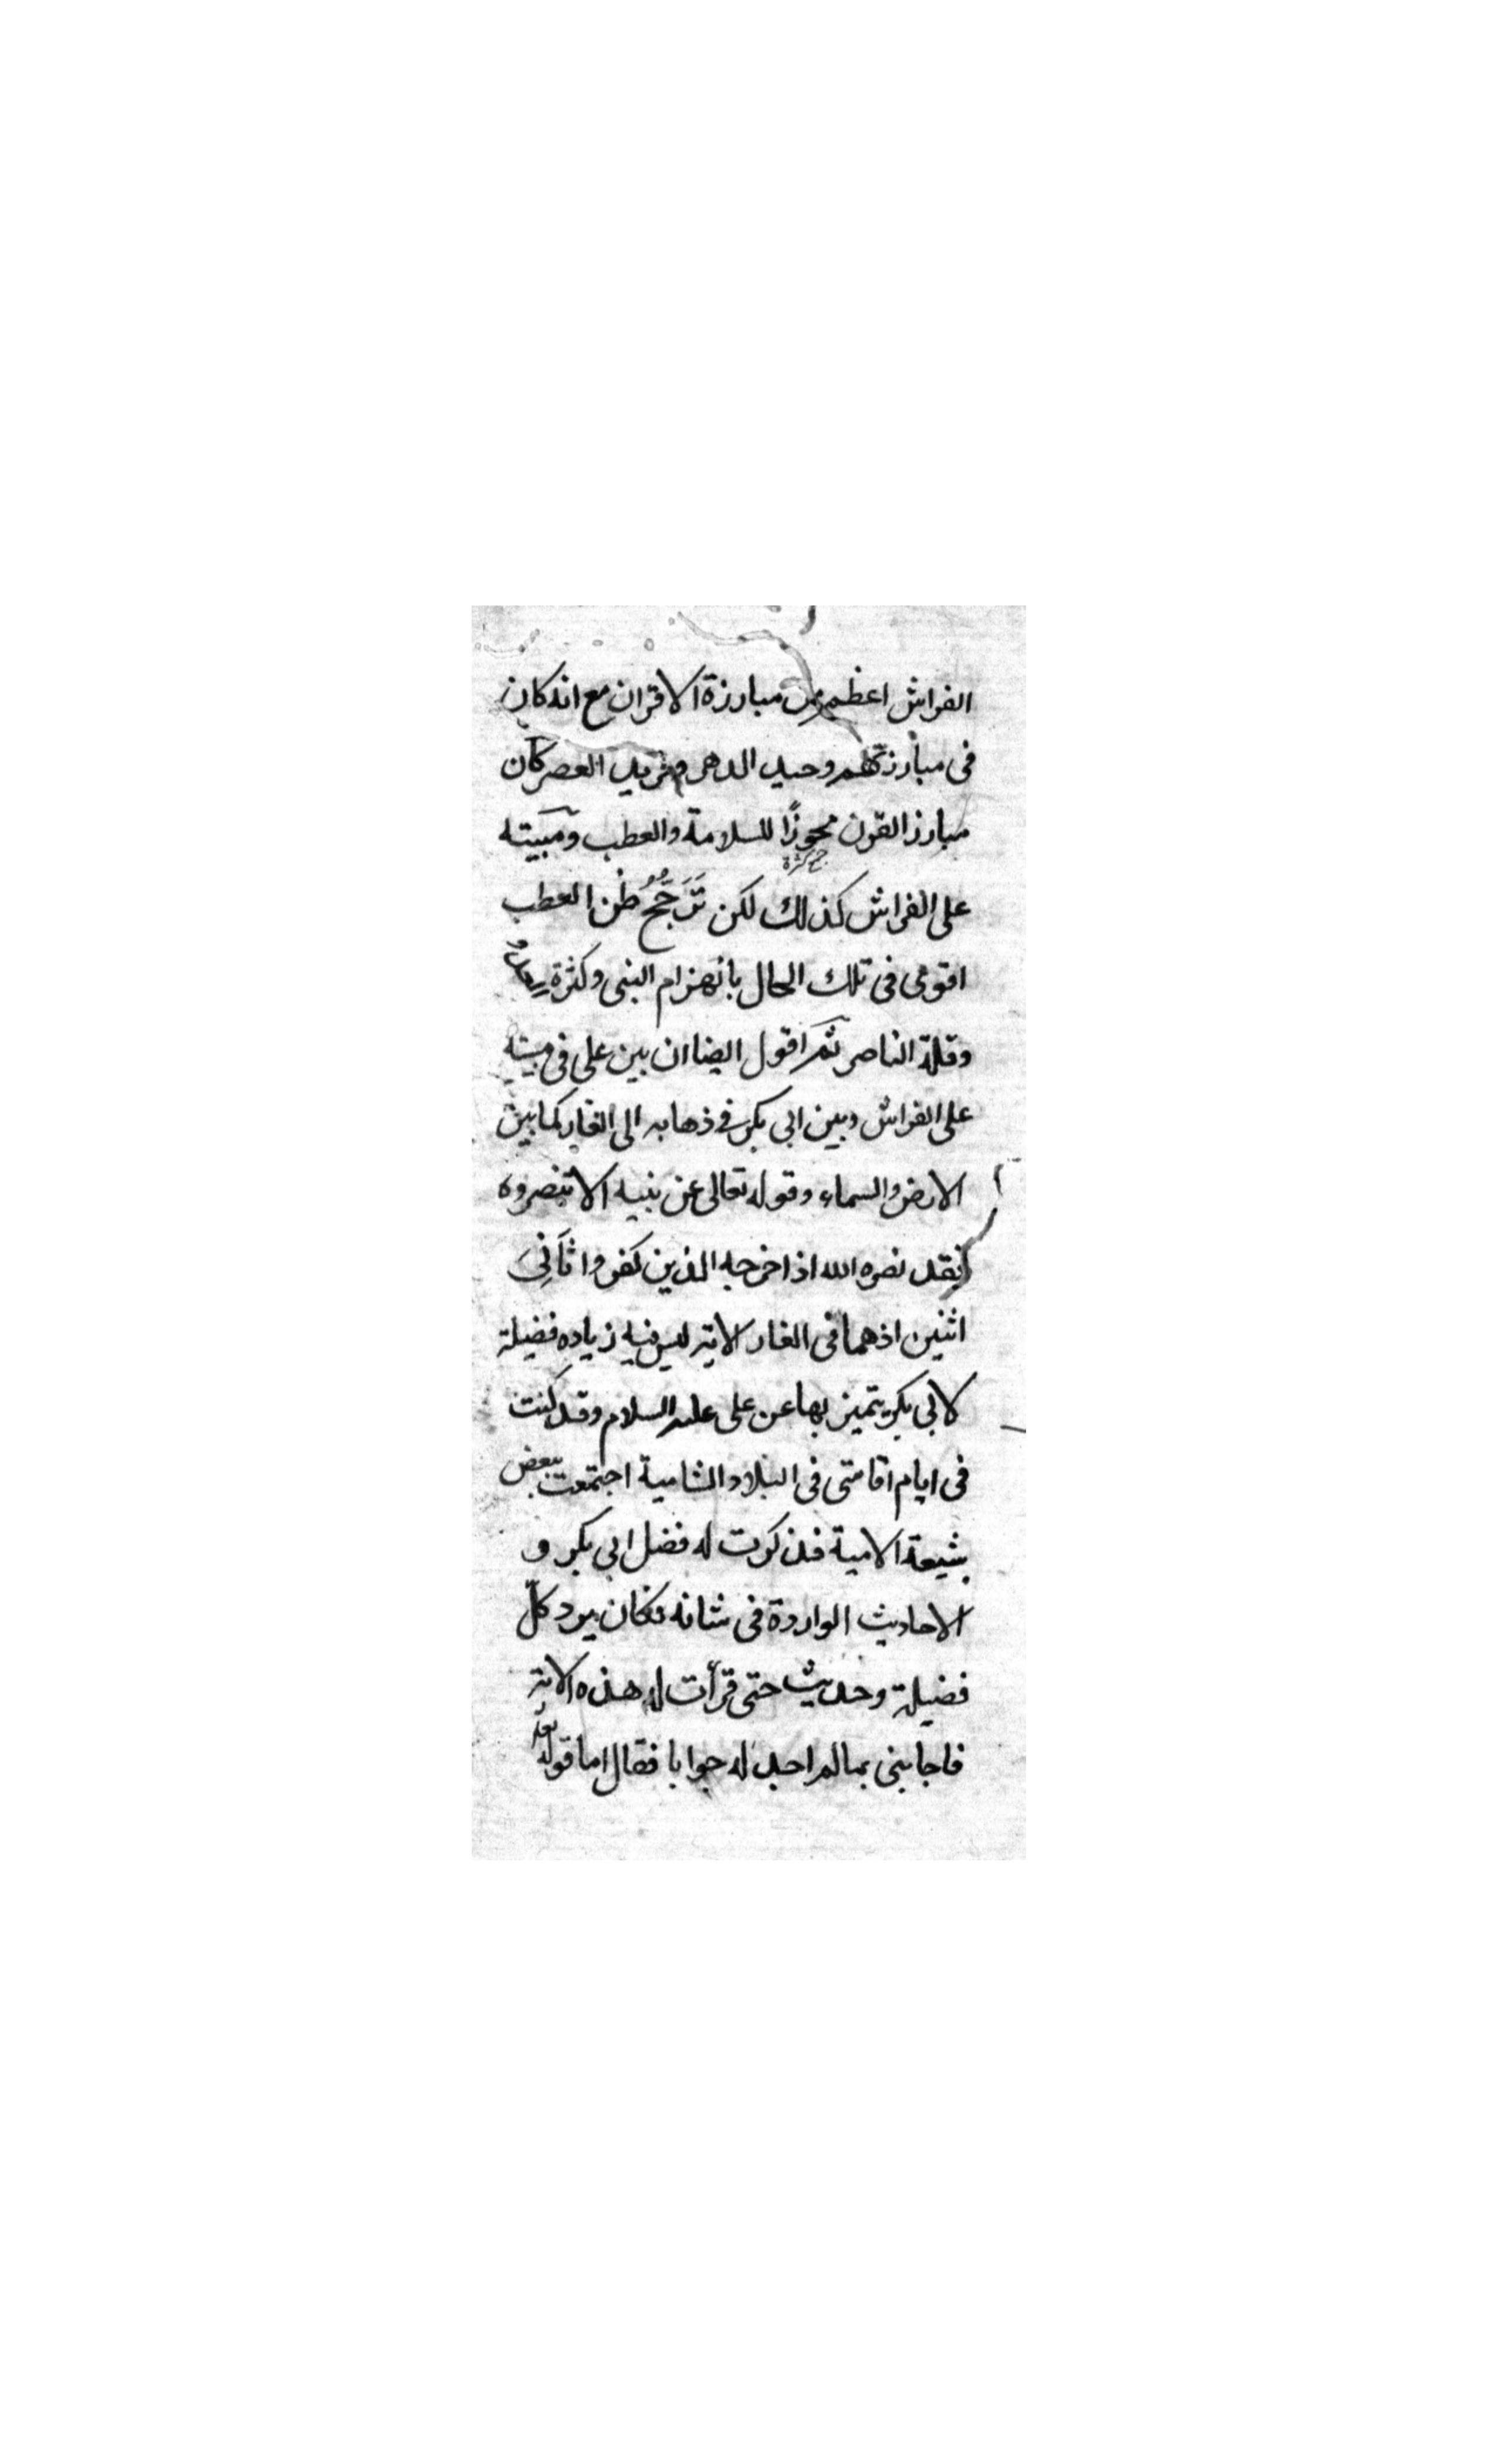 الفراش اعظم من مبارزة الاقران مع انه كان
فى مبارزتهم وحيد الدهر وفريد العصر كان
مبارز القرن مجوزًا للسلامة والعطب ومبيته
على الفراش كذلك لكن تَرَجُّحُ ظن العطب
اقوى فى تلك الحال بانهزام النبى وكثرة
وقلة الناصر ثم اقول ايضا ان بين على فى مبيته
على الفراش وبين ابى بكر فى ذهابه الى الغار كما بين
الارض والسماء وقوله تعالى عن نبيه الا تنصروه
فقد نصره الله اذ اخرجه الذين كفروا ثَانِىَ
اثنين اذ هما فى الغار الاية ليس فيه زياده فضيلة
لابى بكر يتميز بها عن على عليه السلام وقد كنت
فى ايام اقامتى فى البلاد الشامية اجتمعت ببعض
شيعة الامية فذكرت له فضل ابى بكر و
الاحاديث الواردة فى شانه فكان يرد كلّ
فضيلة وحديث حتى قرأت له هذه الاية
فاجابنى بما لم اجد له جوابا فقال اما قوله